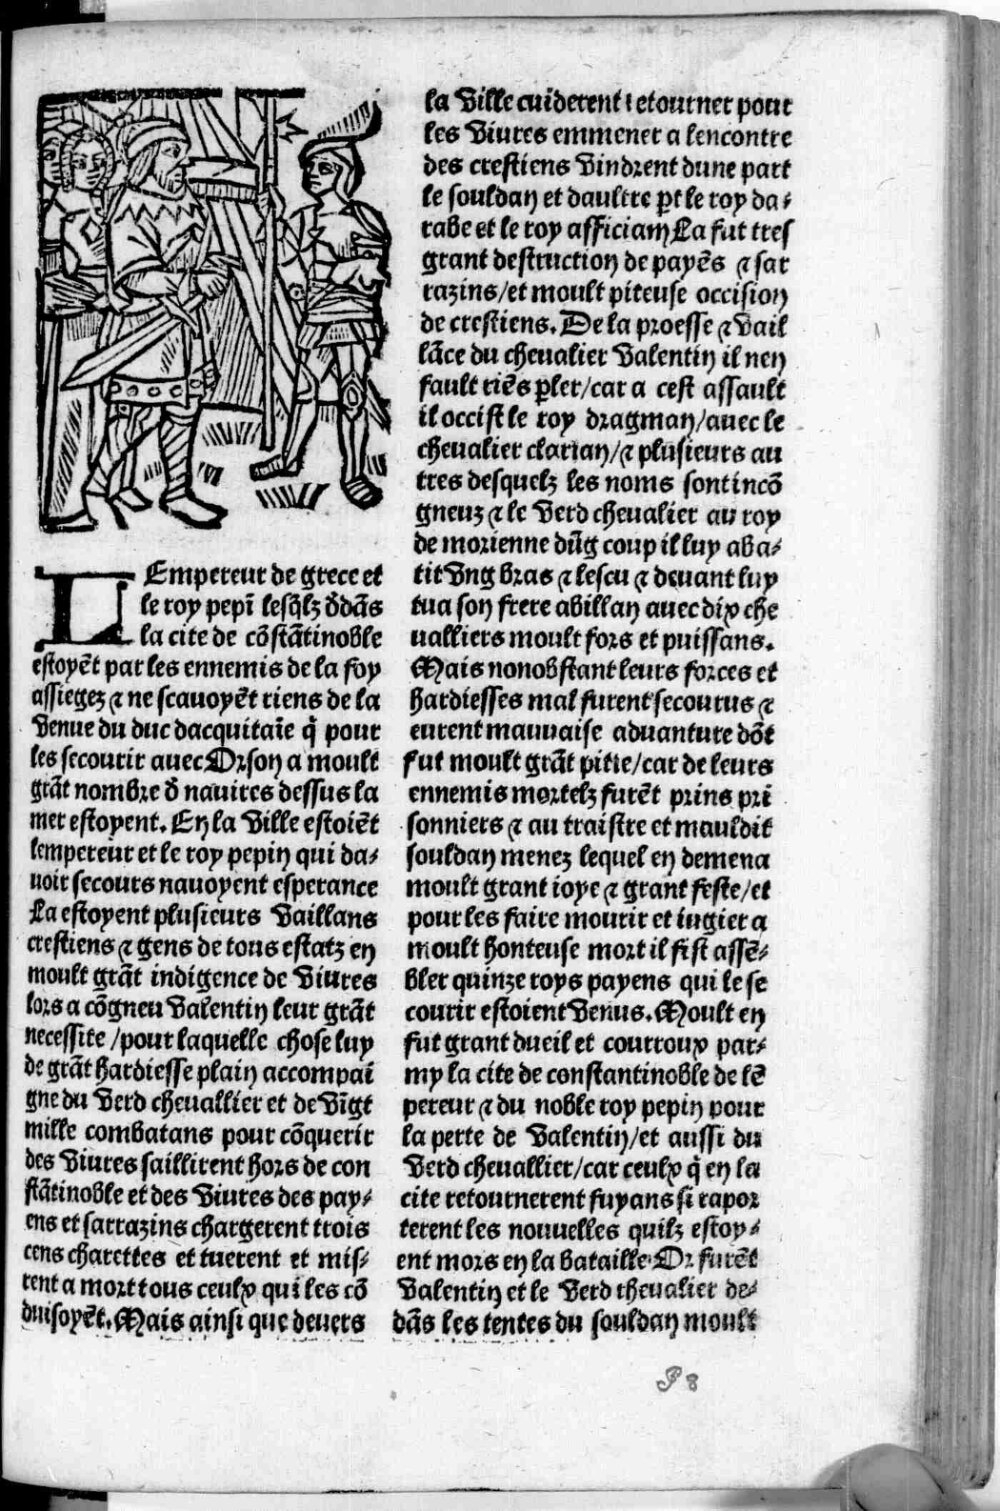 LEmpereur de grece et
le roy pepī lesq̄lz d̄dās
la cite de cōstātinoble
estoyēt par les ennemis de la foy
assiegez ⁊ ne scauoyēt riens de la
venue du duc dacquitaīe q̄ pour
les secourir auec Orson a moult
grāt nombre d̄ nauires dessus la
mer estoyent. En la ville estoiēt
lempereur et le roy pepin qui da⸗
uoir secours nauoyent esperance
La estoyent plusieurs vaillans
crestiens ⁊ gens de tous estatz en
moult grāt indigence de viures
lors a cōgneu valentin leur grāt
necessite /pour laquelle chose luy
de grāt hardiesse plain accompai
gne du verd cheuallier et de vīgt
mille combatans pour cōquerir
des viures saillirent hors de con
stātinoble et des viures des pay⸗
ens et sarrazins chargerent trois
cens charettes et tuerent et mis⸗
rent a mort tous ceulx qui les cō
duisoyēt. Mais ainsi que deuers
la ville cuiderent retourner pour
les viures emmener a lencontre
des crestiens vindrent dune part
le souldan et daultre ꝑt le roy da⸗
rabe et le roy afficiam La fut tres
grant destruction de payēs ⁊ sar
razins/et moult piteuse occision
de crestiens. De la proesse ⁊ vail
lāce du cheualier valentin il nen
fault riēs ꝑler/car a cest assault
il occist le roy dragman/auec le
cheualier clarian/⁊ plusieurs au
tres desquelz les noms sont incō
gneuz ⁊ le verd cheualier au roy
de morienne dūg coup il luy aba⸗
tit vng bras ⁊ lescu ⁊ deuant luy
tua son frere abillan auec dix che
ualliers moult fors et puissans.
Mais nonobstant leurs forces et
hardiesses mal furent secourus ⁊
eurent mauuaise aduanture dōt
fut moult grāt pitie/car de leurs
ennemis mortelz furēt prins pri
sonniers ⁊ au traistre et mauldit
souldan menez lequel en demena
moult grant ioye ⁊ grant feste/et
pour les faire mourir et iugier a
moult honteuse mort il fist assē⸗
bler quinze roys payens qui le se
courir estoient venus. Moult en
fut grant dueil et courroux par⸗
my la cite de constantinoble de lē
pereur ⁊ du noble roy pepin pour
la perte de valentin/et aussi du
verd cheuallier/car ceulx q̄ en la
cite retournerent fuyans si rapor
terent les nouuelles quilz estoy⸗
ent mors en la bataille. Or furēt
valentin et le verd cheualier de⸗
dās les tentes du souldan moult
P 8